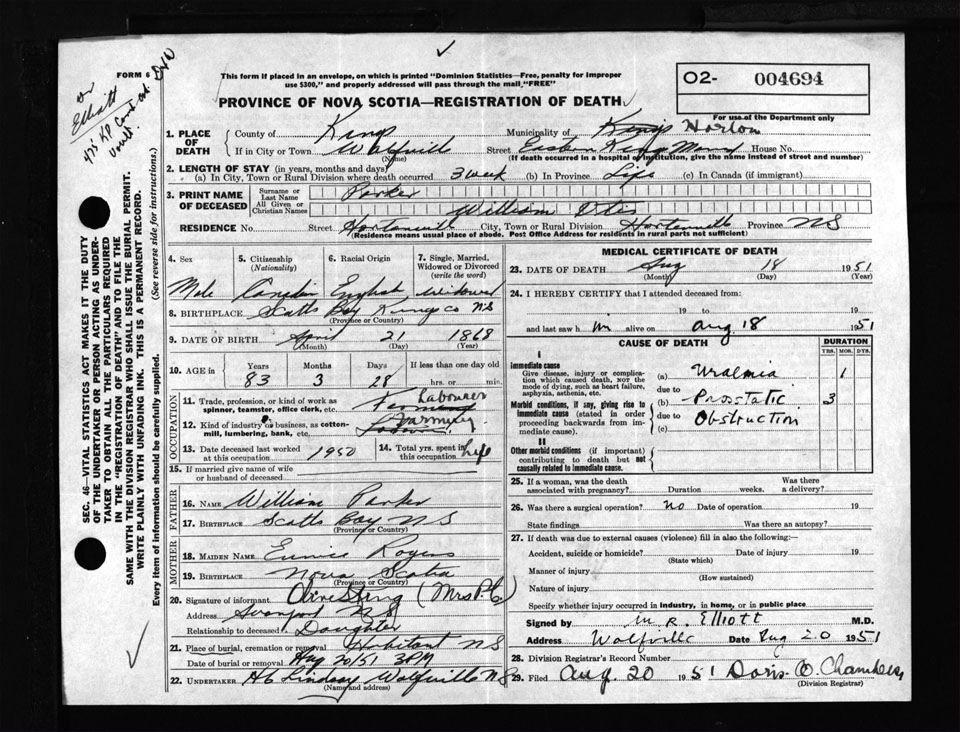 FORM 6
Dr
Elliott
This form if placed in an envelope, on which is printed "Dominion Statistics—Free, penalty for improper
use $300," and properly addressed will pass through the mail "FREE"
PROVINCE OF NOVA SCOTIA—REGISTRATION OF DEATH
O2- 004694
For use of the Department only
SEC. 46—VITAL STATISTICS ACT MAKES IT THE DUTY
OF THE UNDERTAKER OR PERSON ACTING AS UNDER-
TAKER TO OBTAIN ALL THE PARTICULARS REQUIRED
IN THE "REGISTRATION OF DEATH" AND TO FILE THE
SAME WITH THE DIVISION REGISTRAR WHO SHALL ISSUE THE BURIAL PERMIT.
WRITE PLAINLY WITH UNFADING INK. THIS IS A PERMANENT RECORD.
Every item of Information should be carefully supplied. (See reverse side for instructions.)
1. PLACE OF DEATH County of Kings Municipality of Kings Horton
If in City or Town Wolfville (Name) Street Eastern Kings Mem House No.
(If death occurred in a hospital or institution, give the name instead of street and number)
2. LENGTH OF STAY (in years, months and days)
(a) In City, Town or Rural Division where death occurred 3 week (b) In Province Life (c) In Canada (if immigrant)
3. PRINT NAME OF DECEASED Surname or Last Name Parker
All Given or Christian Names William Otis
RESIDENCE No. Street Hortonville City, Town or Rural Division Hortonville Province NS
(Residence means usual place of abode. Post Office Address for residents in rural parts not sufficient)
4. Sex 5. Citizenship (Nationality) 6. Racial Origin 7. Single, Married, Widowed or Divorced (write the word)
Male Canadian English Widowed
8. BIRTHPLACE Scotts Bay Kings co NS
(Province or Country)
9. DATE OF BIRTH April 21 1868
(Month) (Day) (Year)
10. AGE in Years Months Days If less than one day old
83 3 28 hrs. or min.
OCCUPATION
11. Trade, profession, or kind of work as spinner, teamster, office clerk, etc. Farming Labourer
12. Kind of industry or business, as cotton-mill, lumbering, bank, etc. Farming
13. Date deceased last worked at this occupation 1950 14. Total yrs. spent in this occupation Life
15. If married give name of wife or husband of deceased
FATHER
16. NAME William Parker
17. BIRTHPLACE Scotts Bay NS
(Province or Country)
MOTHER
18. MAIDEN NAME Eunice Rogers
19. BIRTHPLACE Nova Scotia
(Province or Country)
20. Signature of informant (Mrs
Address Avonport NS
Relationship to deceased Daughter
21. Place of burial, cremation or removal Habitant NS
Date of burial or removal Aug 20/51 3PM
22. UNDERTAKER Lindsay Wolfville NS
(Name and address)
MEDICAL CERTIFICATE OF DEATH
23. DATE OF DEATH Aug 18 1951
(Month) (Day) (Year)
24. I HEREBY CERTIFY that I attended deceased from:
19 to 19
and last saw him alive on aug. 18 1951
CAUSE OF DEATH DURATION
YRS. MOS. DYS.
I
Immediate cause
Give disease, injury or complication which caused death, not the mode of dying, such as heart failure, asphyxia, asthenia, etc.
(a) Uraemia 1
due to
Morbid conditions, if any, giving rise to immediate cause (stated in order proceeding backwards from immediate cause).
(b) Prostatic 3
due to Obstruction
(c)
II
Other morbid conditions (if important) contributing to death but not causally related to immediate cause.
25. If a woman, was the death associated with pregnancy? Duration weeks. Was there a delivery?
26. Was there a surgical operation? No Date of operation 19
State findings Was there an autopsy?
27. If death was due to external causes (violence) fill in also the following:
Accident, suicide or homicide? Date of injury 19
(State which)
Manner of injury
(How sustained)
Nature of injury
Specify whether injury occurred in industry, in home, or in public place
Signed by M. R. Elliott M.D.
Address Wolfville Date Aug 20 1951
28. Division Registrar's Record Number
29. Filed Aug. 20 1951 Doris O. Chambers
(Division Registrar)